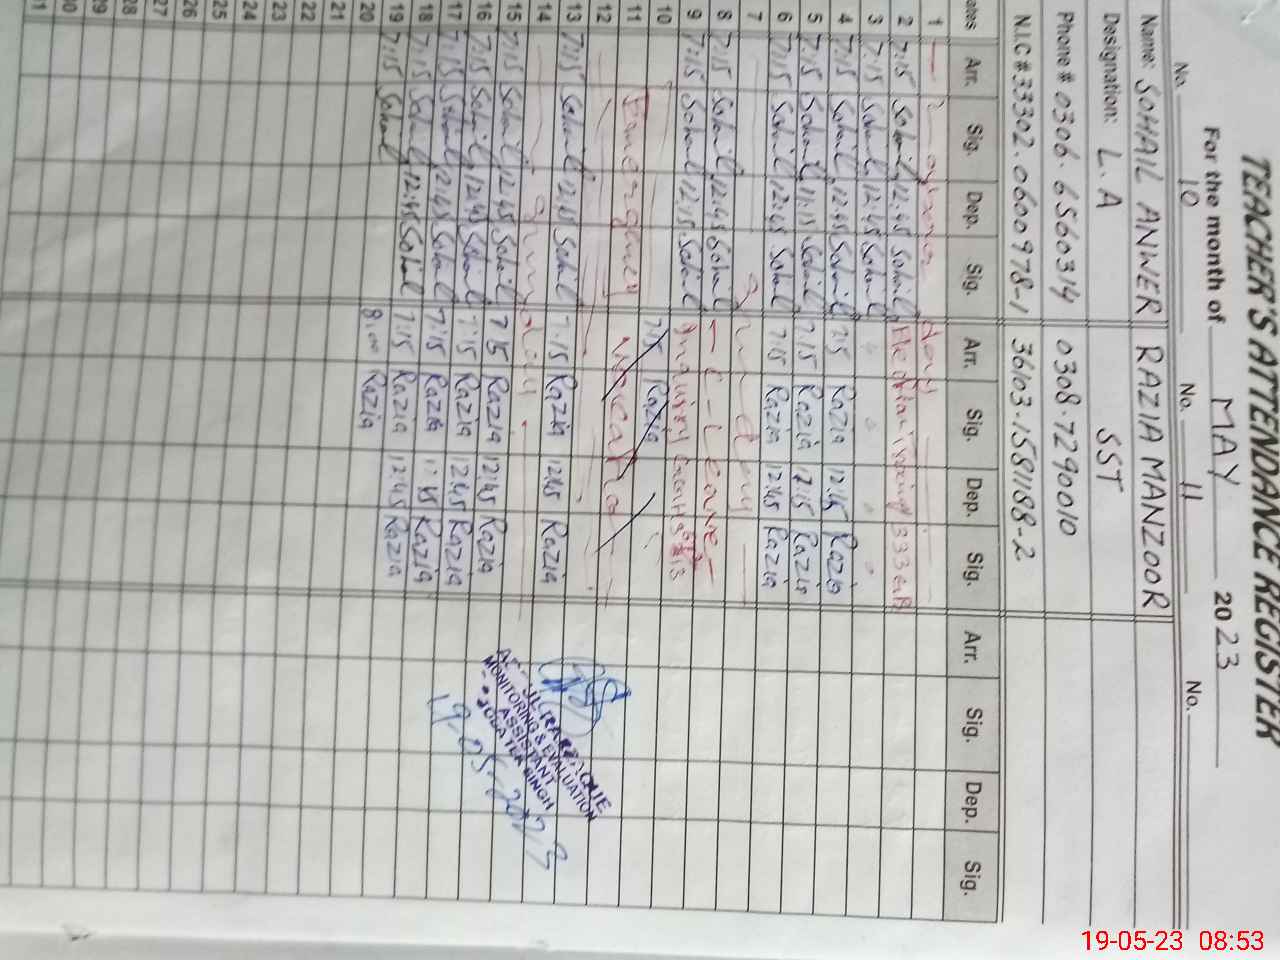 TEACHER'S ATTENDANCE REGISTER
For the month of MAY 2023
No. 10 No. 11 No.
Name: SOHAIL ANWER RAZIA MANZOOR
Designation: L.A SST
Phone # 0306.6560314 0308.7290010
N.I.C # 33302.0600978-1 36103.1581188-2
Arr. Sig. Dep. Sig. Arr. Sig. Dep. Sig. Arr. Sig. Dep. Sig.
1
2 7:15 Sohail 12:45 Sohail
3 7:15 Sohail 12:45 Sohail
4 7:15 Sohail 12:45 Sohail 7:15 Razia 12:45 Razia
5 7:15 Sohail 11:15 Sohail 7:15 Razia 12:15 Razia
6 7:15 Sohail 12:45 Sohail 7:15 Razia 12:45 Razia
7 Sunday
8 7:15 Sohail 12:45 Sohail C-Leave
9 7:15 Sohail 12:15 Sohail
10 7:15 Razia
11
12
13 7:15 Sohail 12:45 Sohail 7:15 Razia 12:45 Razia
14 Sunday
15 7:15 Sohail 12:45 Sohail 7:15 Razia 12:45 Razia
16 7:15 Sohail 12:45 Sohail 7:15 Razia 12:45 Razia
17 7:15 Sohail 12:45 Sohail 7:15 Razia Razia
18 7:15 Sohail 12:45 Sohail 7:15 Razia 12:45 Razia
19 7:15 Sohail 8:00 Razia
20
21
22
23
24
25
26
27
28
29
30
31
MONITORING & EVALUATION
ASSISTANT
TEK SINGH
19-05-2023
19-05-23 08:53